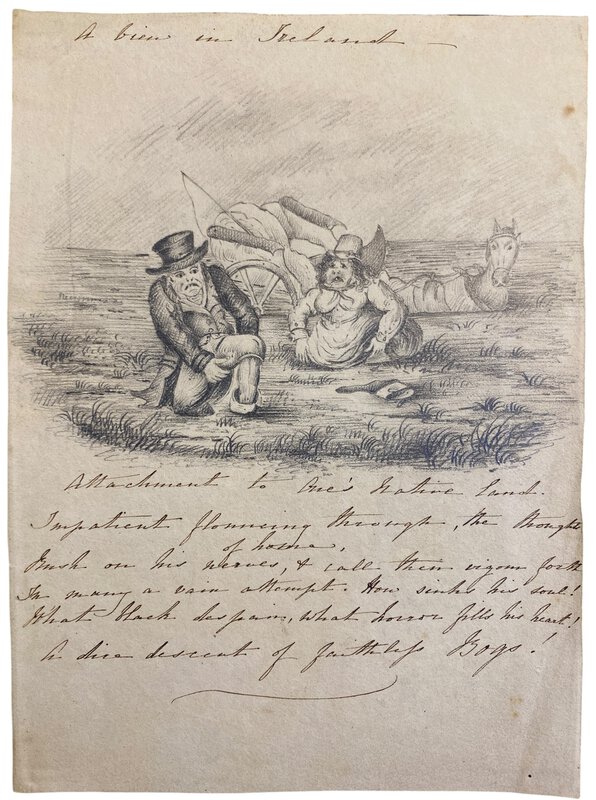 A view in Ireland —
Attachment to One's Native Land.
Impatient flouncing through, the thoughts
of home,
Rush on his nerves, & call their vigour forth
In many a vain attempt. How sinks his soul!
What black despair, what horror fills his heart!
A dire descent of faithless Bogs!